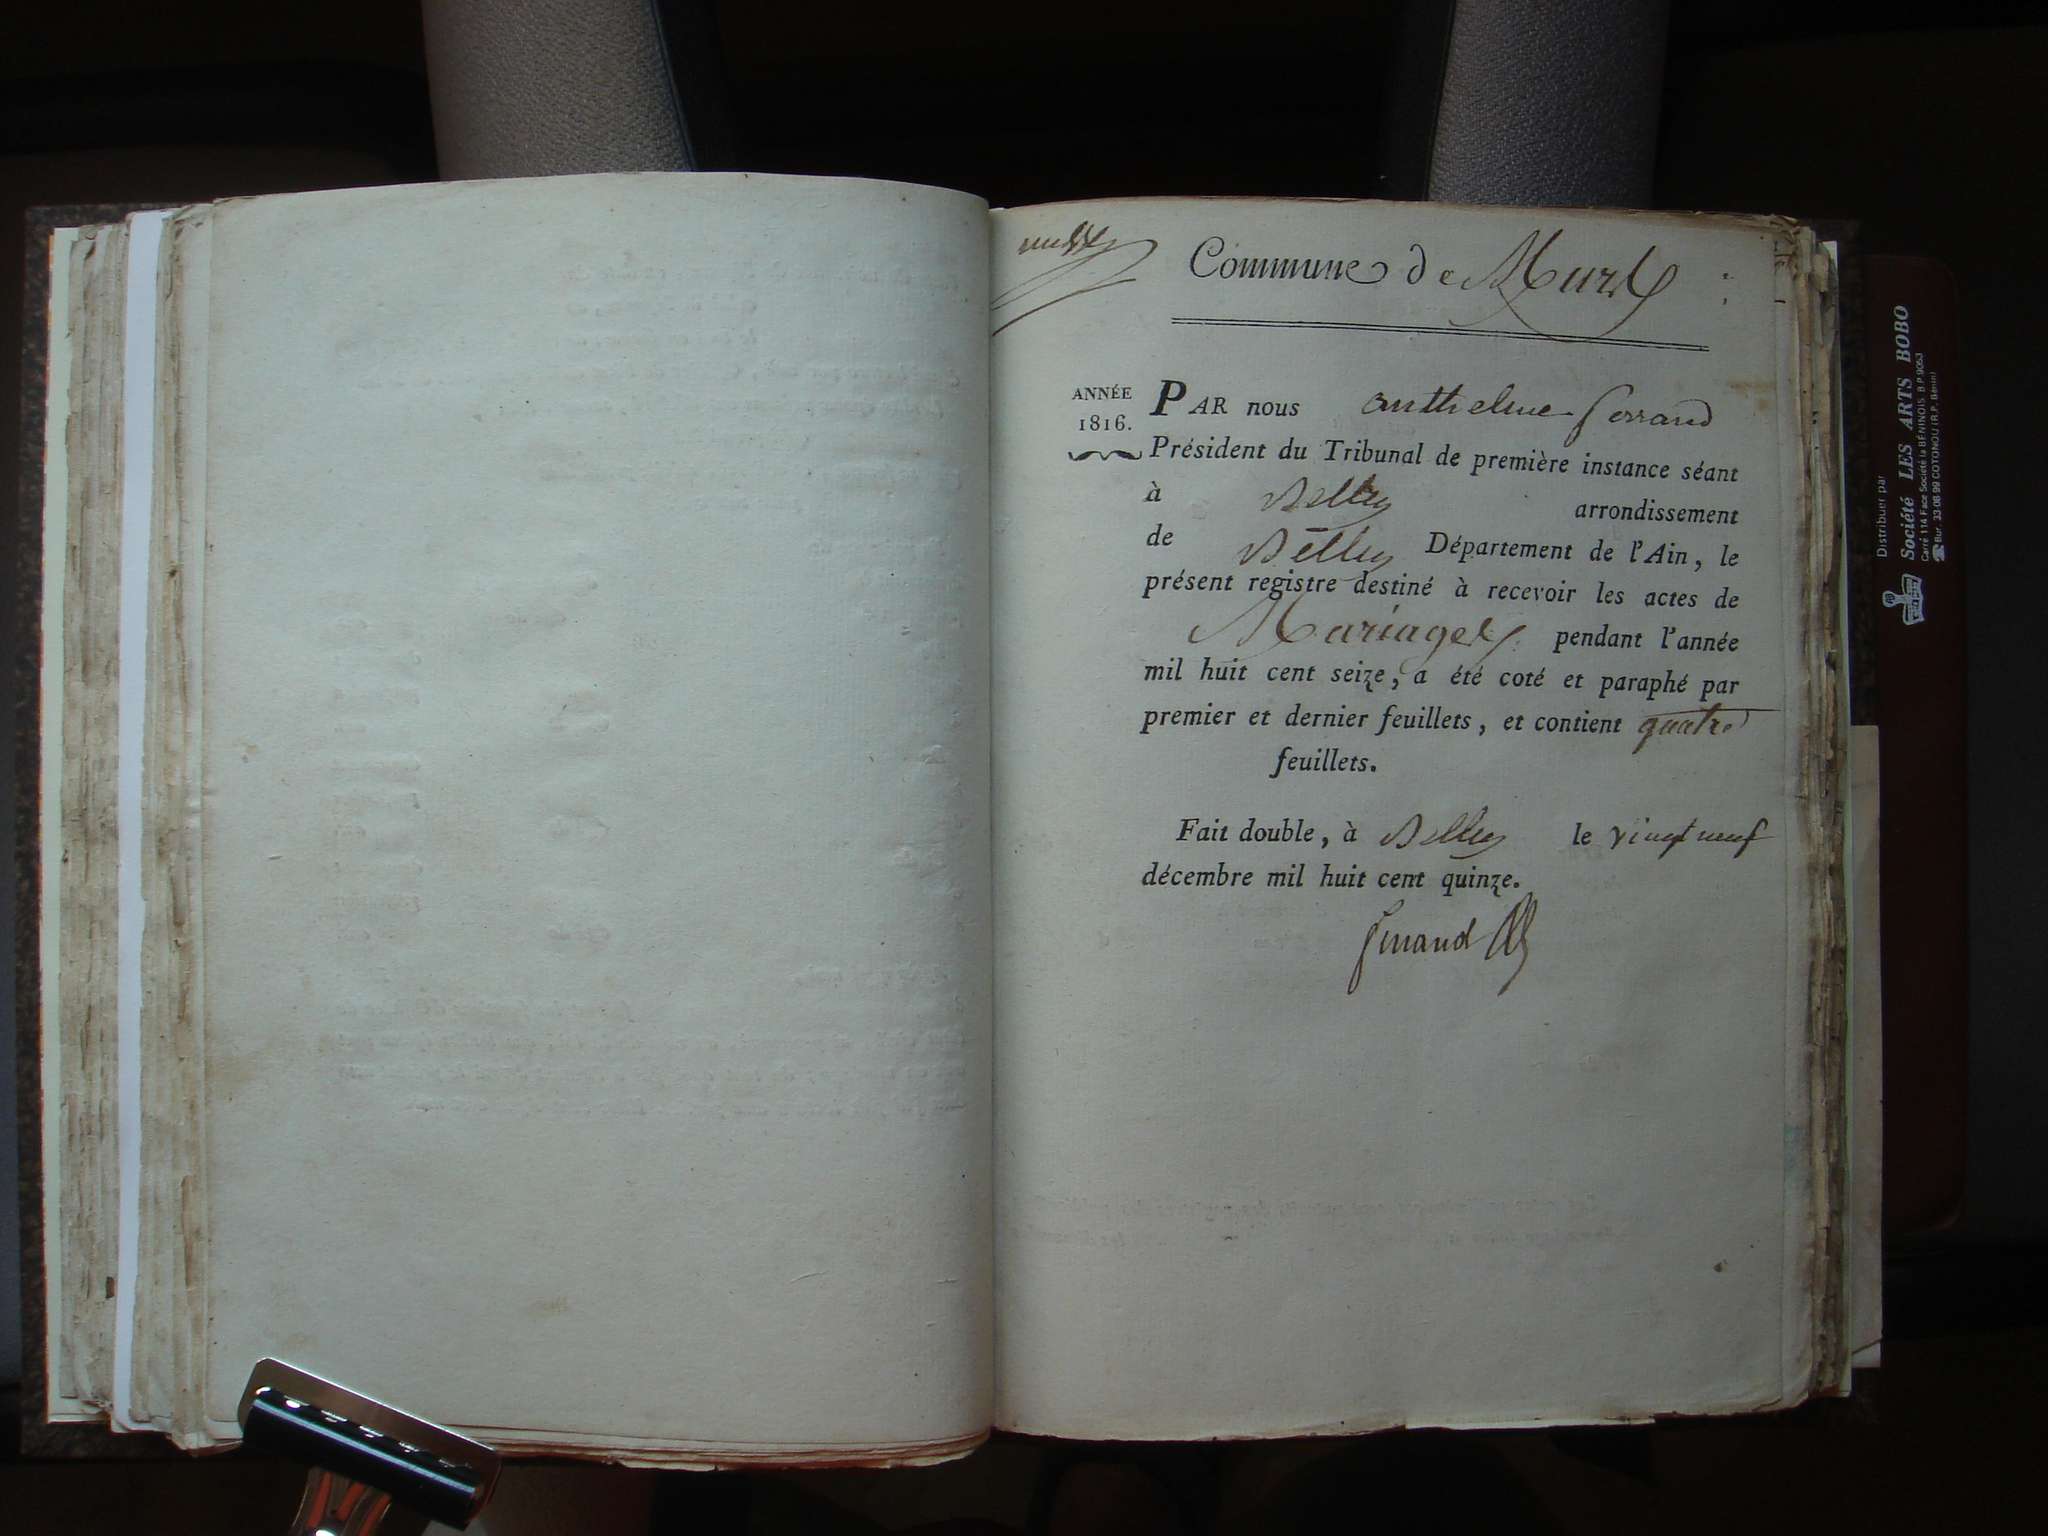 Commune de Murs
ANNÉE
1816.
PAR nous Anthelme ferrand
Président du Tribunal de première instance séant
à Belley arrondissement
de Belley Département de l'Ain, le
présent registre destiné à recevoir les actes de
Mariages pendant l'année
mil huit cent seize, a été coté et paraphé par
premier et dernier feuillets, et contient quatre
feuillets.
Fait double, à Belley le vingt neuf
décembre mil huit cent quinze.
ferrand
Distribuer par
Société LES ARTS BOBO
Carré 114 Face Société la BÉNINOIS. B.P. 9063
Bur. 33-08 99 COTONOU (R.P. Bénin)